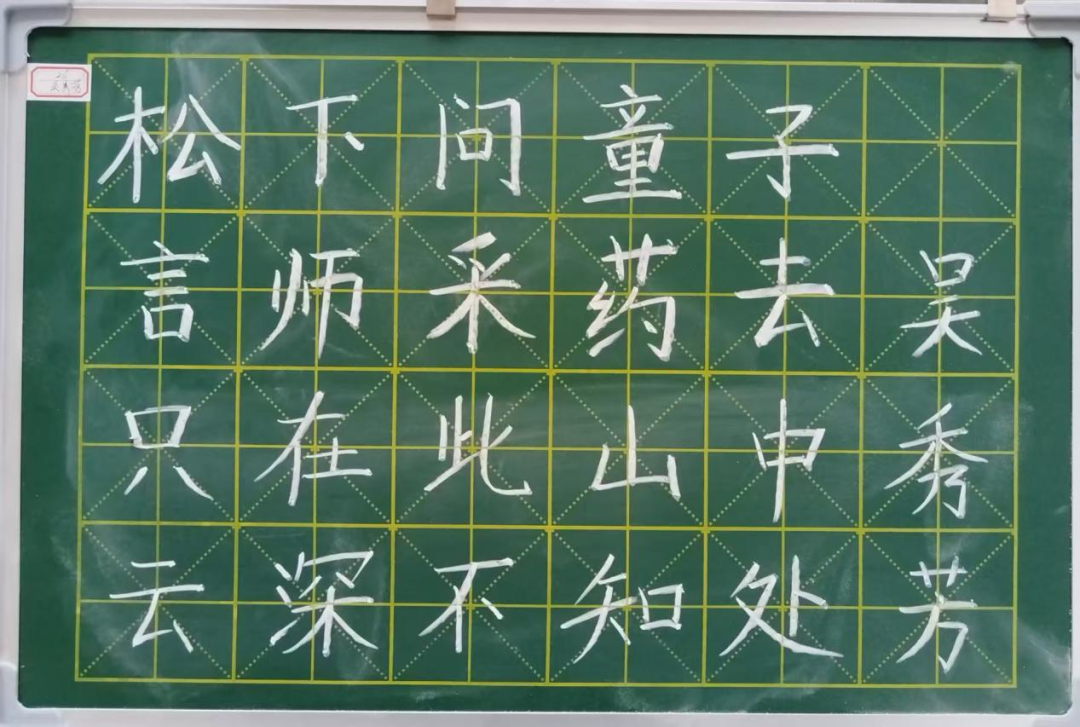 松下问童子
言师采药去
只在此山中
云深不知处
吴秀芳